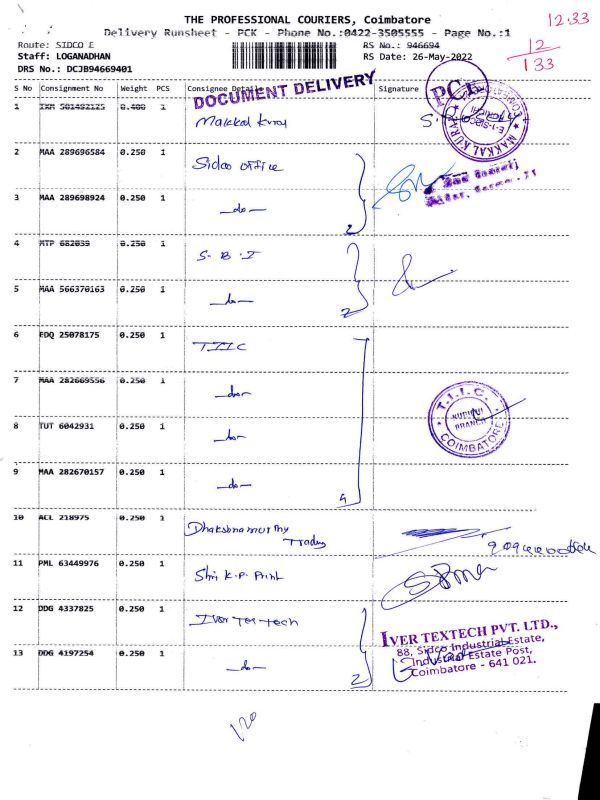 THE PROFESSIONAL COURIERS, Coimbatore
12.33
Delivery Runsheet - PCK - Phone No.:0422-3505555 - Page No.:1
12
133
Route: SIDCO E
RS No.: 946694
Staff: LOGANADHAN
RS Date: 26-May-2022
DRS No.: DCJB94669401
S No Consignment No Weight PCS Consignee Details Signature
DOCUMENT DELIVERY
PCK
1 IXR 501482125 0.400 1
MAKKAL KURAL
2 MAA 289696584 0.250 1 Sidco office
3 MAA 289698924 0.250 1 -do- 2
4 MTP 682039 0.250 1 S. B. I
5 MAA 566370163 0.250 1 -do- 2
6 EDQ 25078175 0.250 1 TIIC
7 MAA 282669556 0.250 1 -do-
T.I.I.C.
KURICHI
BRANCH
COIMBATORE
8 TUT 6042931 0.250 1 -do-
9 MAA 282670157 0.250 1 -do- 4
10 ACL 218975 0.250 1 Dhakshnamurthy
11 PML 63449976 0.250 1 Shri K.P. Print
12 DDG 4337825 0.250 1 Iver Tex tech
IVER TEXTECH PVT. LTD.,
88, Sidco Industrial Estate,
Industrial Estate Post,
Coimbatore - 641 021.
13 DDG 4197254 0.250 1 -do- 2